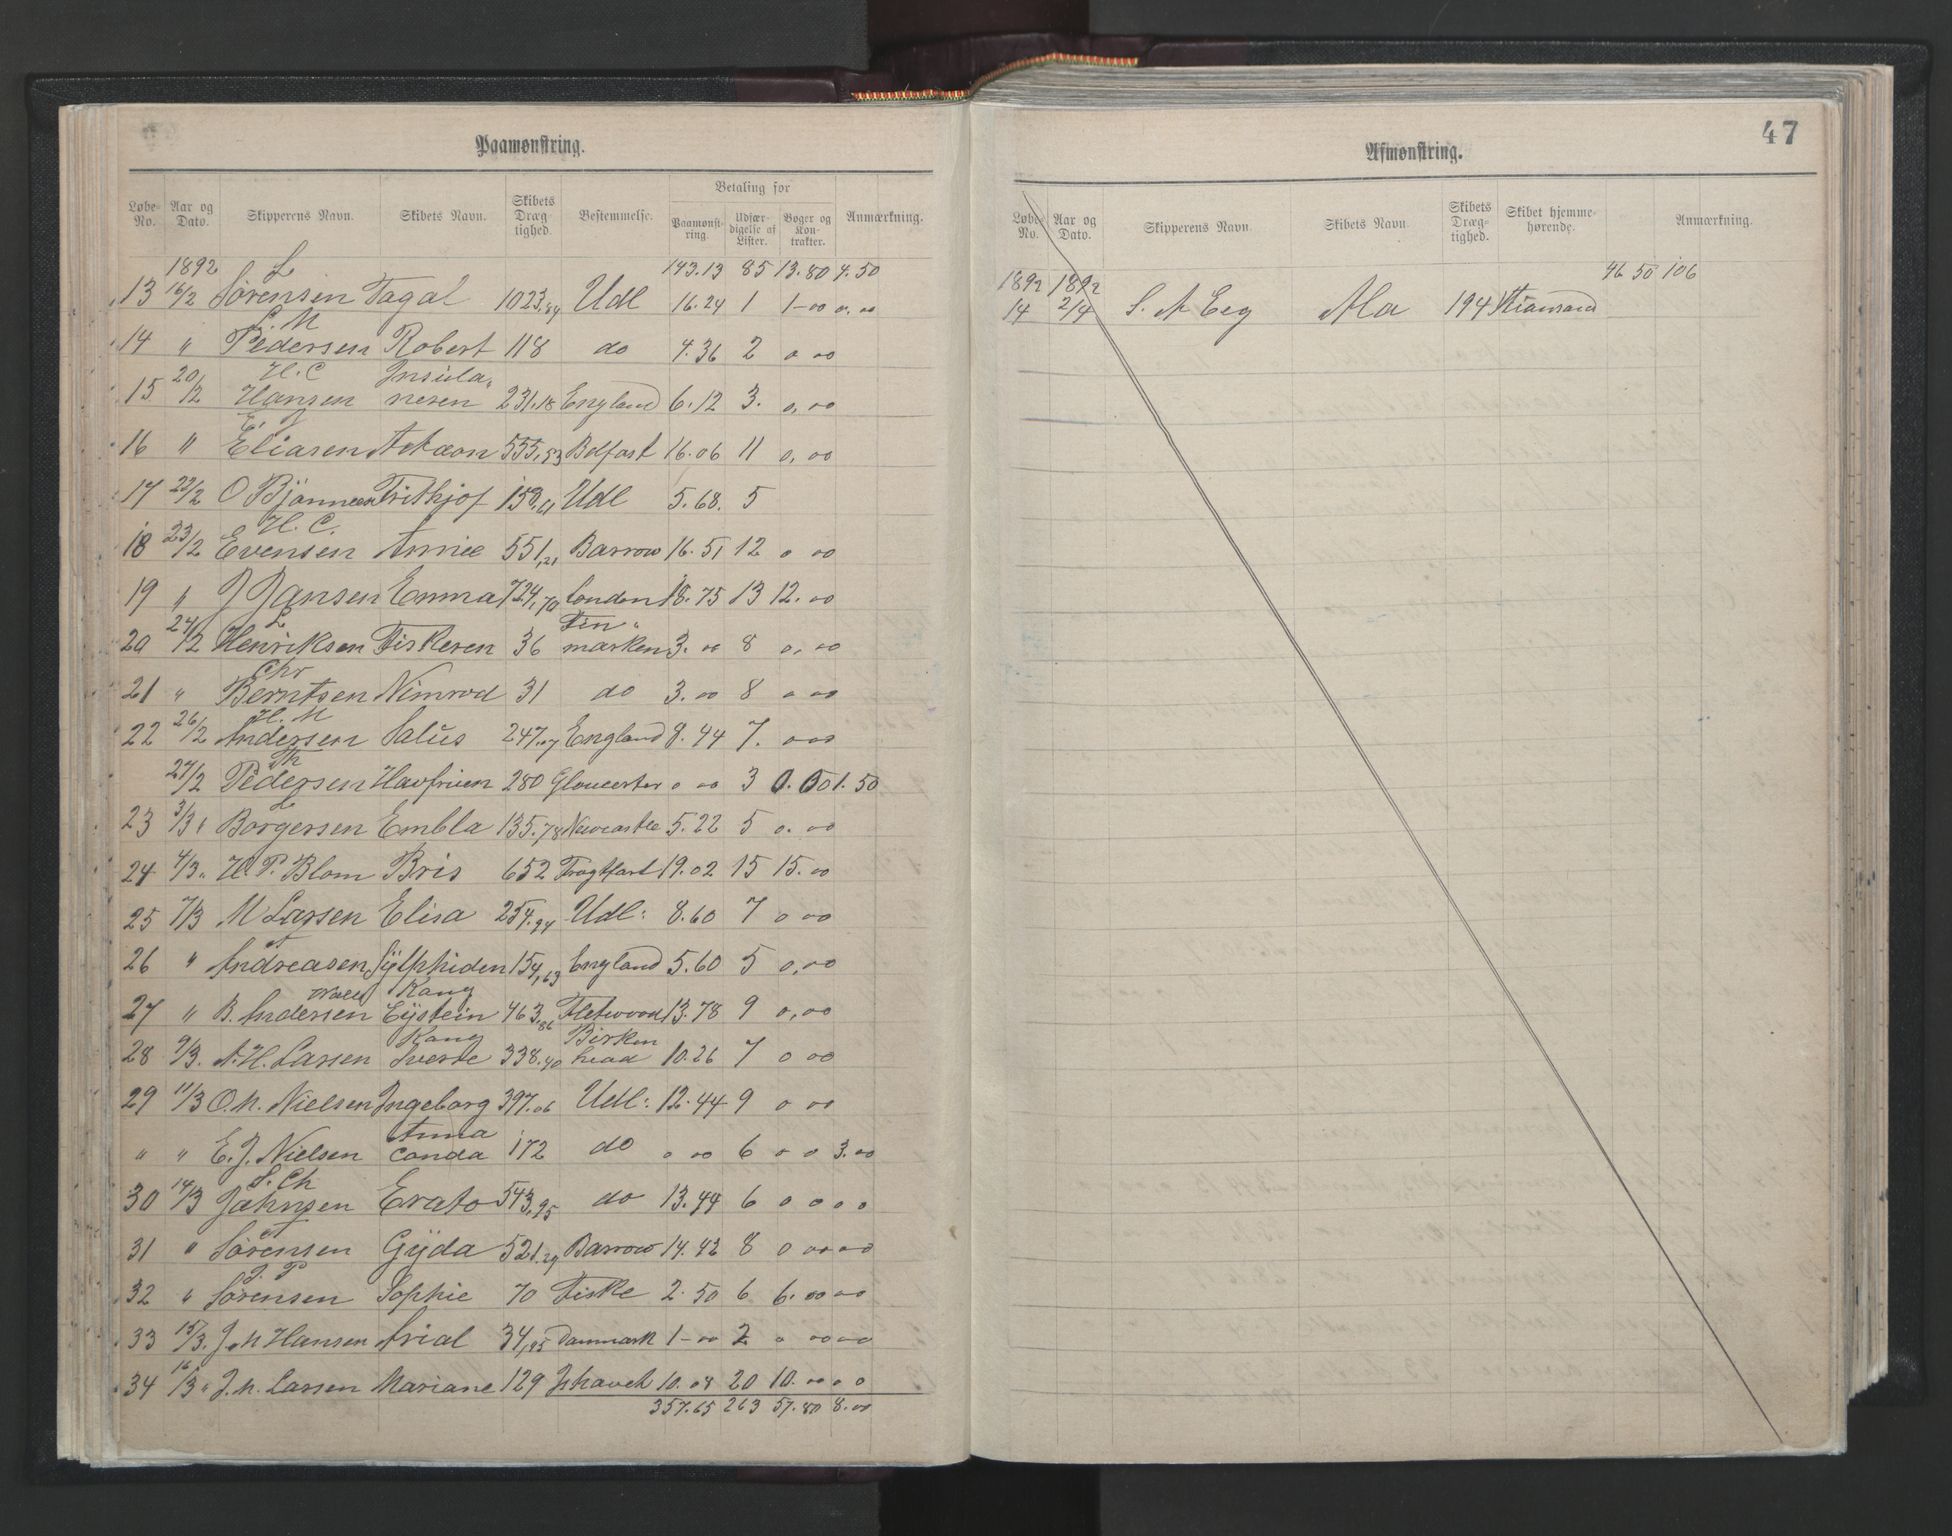 Paamønstring.
Løbe-No. Aar og Dato. Skipperens Navn. Skibets Navn. Skibets Dræg-tighed. Bestemmelse. Betaling for Paamønst-ring. Udfær-digelse af Lister. Bøger og Kon-trakter. Anmærkning.
1892 143.13 85 13.80 4.50
13 16/2 L Sørensen Fagal 1023,84 Udl 16.24 1 1-00 0.00
14 " L. M Pedersen Robert 118 do 4.36 2 0 00
15 20/2 H. C Hansen Insula-neren 231.18 England 6.12 3. 0,00
16 " E. Eliasen Actæon 555,53 Belfast 16.06 11 0,00
17 22/2 O Bjønnees Frithjof 158,61 Udl 5.68. 5
18 23/2 H. C. Evensen Annie 551,21 Barrow 16.51 12 0 00
19 " J Jansen Emma 724,70 London 18.75 13 12.00
20 24/2 L Henriksen Fiskeren 36 Fin-marken 3.00 8 0,00
21 " Chr Berntsen Nimrod 31 do 3.00 8 0 00
22 26/2 H. M Andersen Salus 247,07 England 8.44 7. 000
27/2 Th Pedersen Havfruen 280 Gloucester 0 00 3 0.00 1.50
23 3/3 " L Borgersen Embla 135.78 Newcastle 5.22 5 0.00
24 4/3 " H. P. Blom Bris 652 Fragtfart 19.02 15 15.00
25 7/3 M Larsen Elisa 254.94 Udl: 8.60 7 0 00
26 " Andreasen Sylphiden 154,63 England 5.60 5 0,00
27 " B. Andersen Kong Eystein 463,86 Fletwood 13.78 9 0,00
28 9/3. A. H. Larsen Kong Sverre 338.40 Birkenhead 10.26 7 0 00
29 11/3 O. N. Nielsen Ingeborg 397.06 Udl: 12.44 9 0 00
" " E. J. Nielsen Anna conda 172 do 0 00 6 0 0 3.00
30 14/3 S. Ch Jahnsen Erato 543,95 do 13.44 6 0 0 0 0
31 " Sørensen Gyda 521.29 Barrow 14.42 8 0 00 00
32 " J. P Sørensen Sophie 70 Fiske 2.50 6 6.00 00
33 15/3. J. N Hansen Arial 34,95 Danmark 1-00 2 0 00 00
34 16/3 " J. N. Larsen Mariane 129 Ishavet 10.08 20 10.00 0 0
357.65 263 57.80 8.00
47
Afmønstring.
Løbe-No. Aar og Dato. Skipperens Navn. Skibets Navn. Skibets Dræg-tighed. Skibet hjemme-hørende. Anmærkning.
46 50 106
1892 1892
14 2/4 S. A Eeg Ala 194 Kristiansand